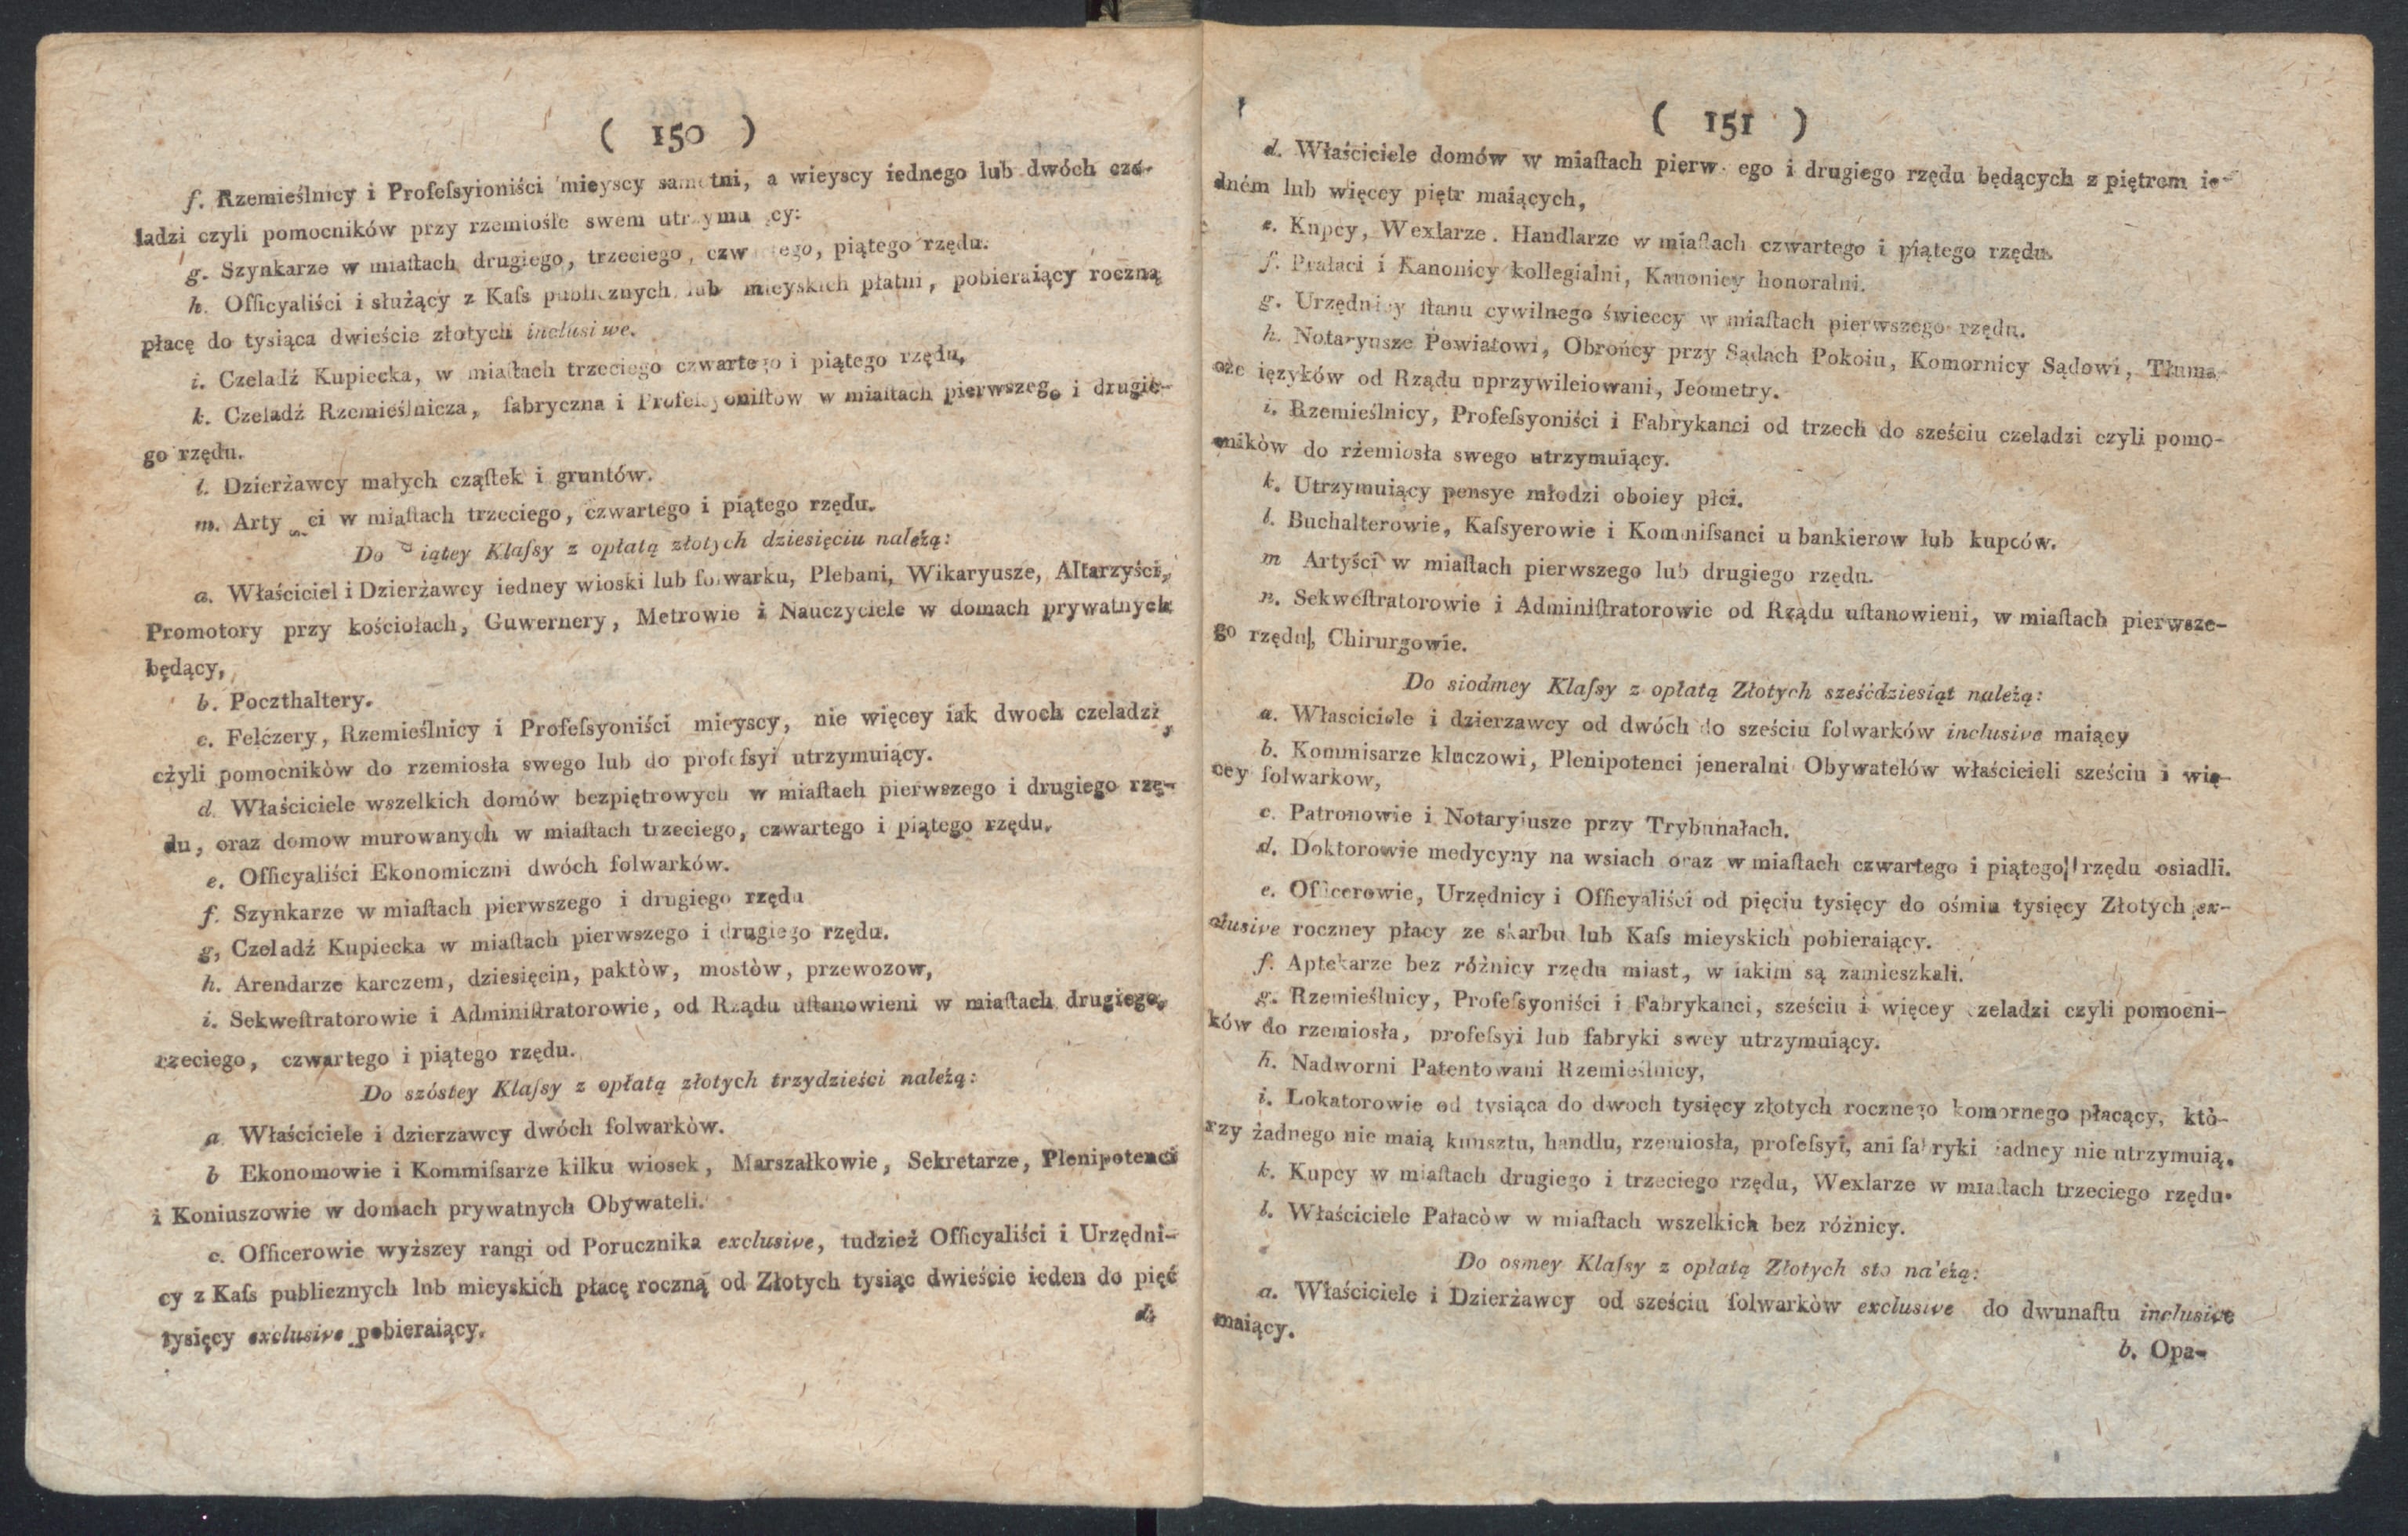 ( 150 )
f. Rzemieślnicy i Profeſsyioniści mieyscy samotni, a wieyscy iednego lub dwóch cze-
ladzi czyli pomocników przy rzemiośle swem
g. Szynkarze w miaſtach drugiego, trzeciego, piątego rzędu.
h. Officyaliści i służący z Kaſs publicznych lub mieyskich płatni, pobieraiący roczną
płacę do tysiąca dwieście złotych inclusiwe.
i. Czeladź Kupiecka, w miaſtach trzeciego czwartego i piątego rzędu,
k. Czeladź Rzemieślnicza, fabryczna i Profeſsyoniſtow w miaſtach pierwszego i drugie-
go rzędu.
l. Dzierżawcy małych cząſtek i gruntów.
m. Arty ci w miaſtach trzeciego, czwartego i piątego rzędu.
Do piątey Klaſsy z opłatą złotych dziesięciu należą:
a. Właściciel i Dzierżawcy iedney wioski lub folwarku, Plebani, Wikaryusze, Altarzyści,
Promotory przy kościołach, Guwernery, Metrowie i Nauczyciele w domach prywatnych
będący,
b. Poczthaltery.
c. Felczery, Rzemieślnicy i Profeſsyoniści mieyscy, nie więcey iak dwoch czeladzi,
cżyli pomocnikòw do rzemiosła swego lub do profeſsyi utrzymuiący.
d. Właściciele wszelkich domów bezpiętrowych w miaſtach pierwszego i drugiego rzę-
du, oraz domow murowanych w miaſtach trzeciego, czwartego i piątego rzędu.
e. Officyaliści Ekonomiczni dwóch folwarków.
f. Szynkarze w miaſtach pierwszego i drugiego rzędu
g, Czeladź Kupiecka w miaſtach pierwszego i drugiego rzędu.
h. Arendarze karczem, dziesięcin, paktòw, mostòw, przewozow,
i. Sekweſtratorowie i Adminiſtratorowie, od Rządu uſtanowieni w miaſtach drugiego,
rzeciego, czwartego i piątego rzędu.
Do szóstey Klaſsy z opłatą złotych trzydzieści należą:
a Właściciele i dzierzawcy dwóch folwarkòw.
b Ekonomowie i Kommiſsarze kilku wiosek, Marszałkowie, Sekretarze, Plenipotenci
i Koniuszowie w domach prywatnych Obywateli.
c. Officerowie wyższey rangi od Porucznika exclusive, tudzież Officyaliści i Urzędni-
cy z Kaſs publicznych lub mieyskich płacę roczną od Złotych tysiąc dwieście ieden do pięć
tysięcy exclusive pobieraiący.
d.
( 151 )
d. Właściciele domów w miaſtach pierw ego i drugiego rzędu będących z piętrem ie-
dném lub więcey piętr maiących,
e. Kupcy, Wexlarze. Handlarze w miaſtach czwartego i piątego rzędu.
f. Prałaci i Kanonicy kollegialni, Kanonicy honoralni.
g. Urzędnicy ſtanu cywilnego świeccy w miaſtach pierwszego rzędu.
h. Notaryusze Powiatowi, Obrońcy przy Sądach Pokoiu, Komornicy Sądowi, Tłuma-
cze ięzyków od Rządu uprzywileiowani, Jeometry.
i. Rzemieślnicy, Profeſsyoniści i Fabrykanci od trzech do sześciu czeladzi czyli pomo-
cników do rżemiosła swego utrzymuiący.
k. Utrzymuiący pensye młodzi oboiey płci.
l. Buchalterowie, Kaſsyerowie i Kommiſsanci u bankierow lub kupców.
m Artyści w miaſtach pierwszego lub drugiego rzędu.
n. Sekweſtratorowie i Adminiſtratorowie od Rządu uſtanowieni, w miaſtach pierwsze-
go rzędu, Chirurgowie.
Do siodmey Klaſsy z opłatą Złotych sześćdziesiąt należą:
a. Właściciele i dzierzawcy od dwóch do sześciu folwarków inclusive maiący
b. Kommisarze kluczowi, Plenipotenci jeneralni Obywatelów właścicieli sześciu i wię-
cey folwarkow,
c. Patronowie i Notaryiusze przy Trybunałach.
d. Doktorowie medycyny na wsiach oraz w miaſtach czwartego i piątego rzędu osiadli.
e. Officerowie, Urzędnicy i Officyaliści od pięciu tysięcy do ośmiu tysięcy Złotych ex-
clusive roczney płacy ze skarbu lub Kaſs mieyskich pobieraiący.
f. Aptekarze bez różnicy rzędu miast, w iakim są zamieszkali.
g. Rzemieślnicy, Profeſsyoniści i Fabrykanci, sześciu i więcey czeladzi czyli pomocni-
ków do rzemiosła, profeſsyi lub fabryki swey utrzymuiący.
h. Nadworni Patentowani Rzemieślnicy,
i. Lokatorowie od tysiąca do dwoch tysięcy złotych rocznego komornego płacący, któ-
rzy żadnego nie maią kunsztu, handlu, rzemiosła, profeſsyi, ani fabryki żadney nie utrzymuią.
k. Kupcy w miaſtach drugiego i trzeciego rzędu, Wexlarze w miaſtach trzeciego rzędu.
l. Właściciele Pałaców w miaſtach wszelkich bez różnicy.
Do osmey Klaſsy z opłatą Złotych sto należą:
a. Właściciele i Dzierżawcy od sześciu folwarkòw exclusive do dwunaſtu inclusive
maiący.
b. Opa-